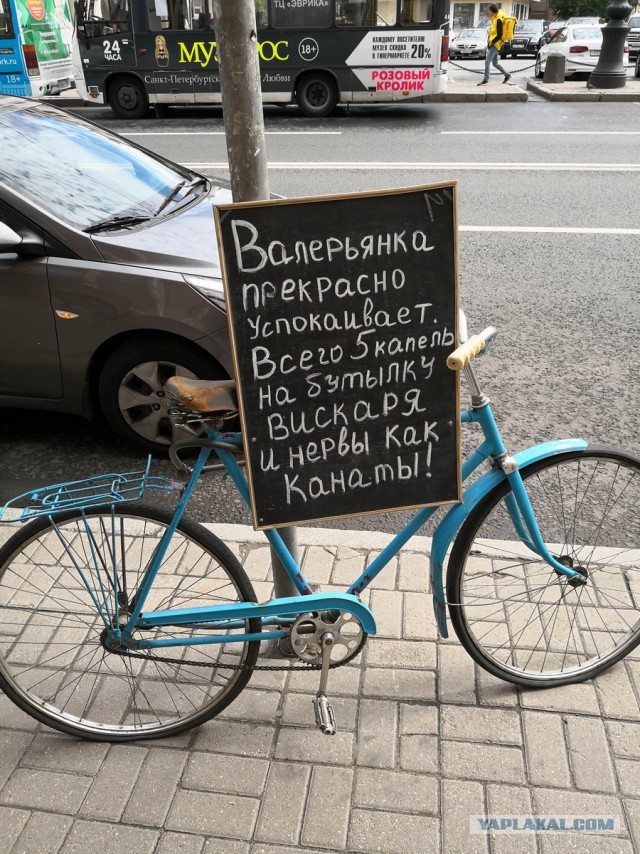 24
ЧАСА
Санкт-Петербург
Любви
18+
ТЦ «ЭВРИКА»
КАЖДОМУ ПОСЕТИТЕЛЮ
МУЗЕЯ СКИДКА
В ГИПЕРМАРКЕТЕ
20%
РОЗОВЫЙ
КРОЛИК
18+
Валерьянка
прекрасно
успокаивает.
Всего 5 капель
на бутылку
вискаря
и нервы как
канаты!
YAPLAKAL.COM